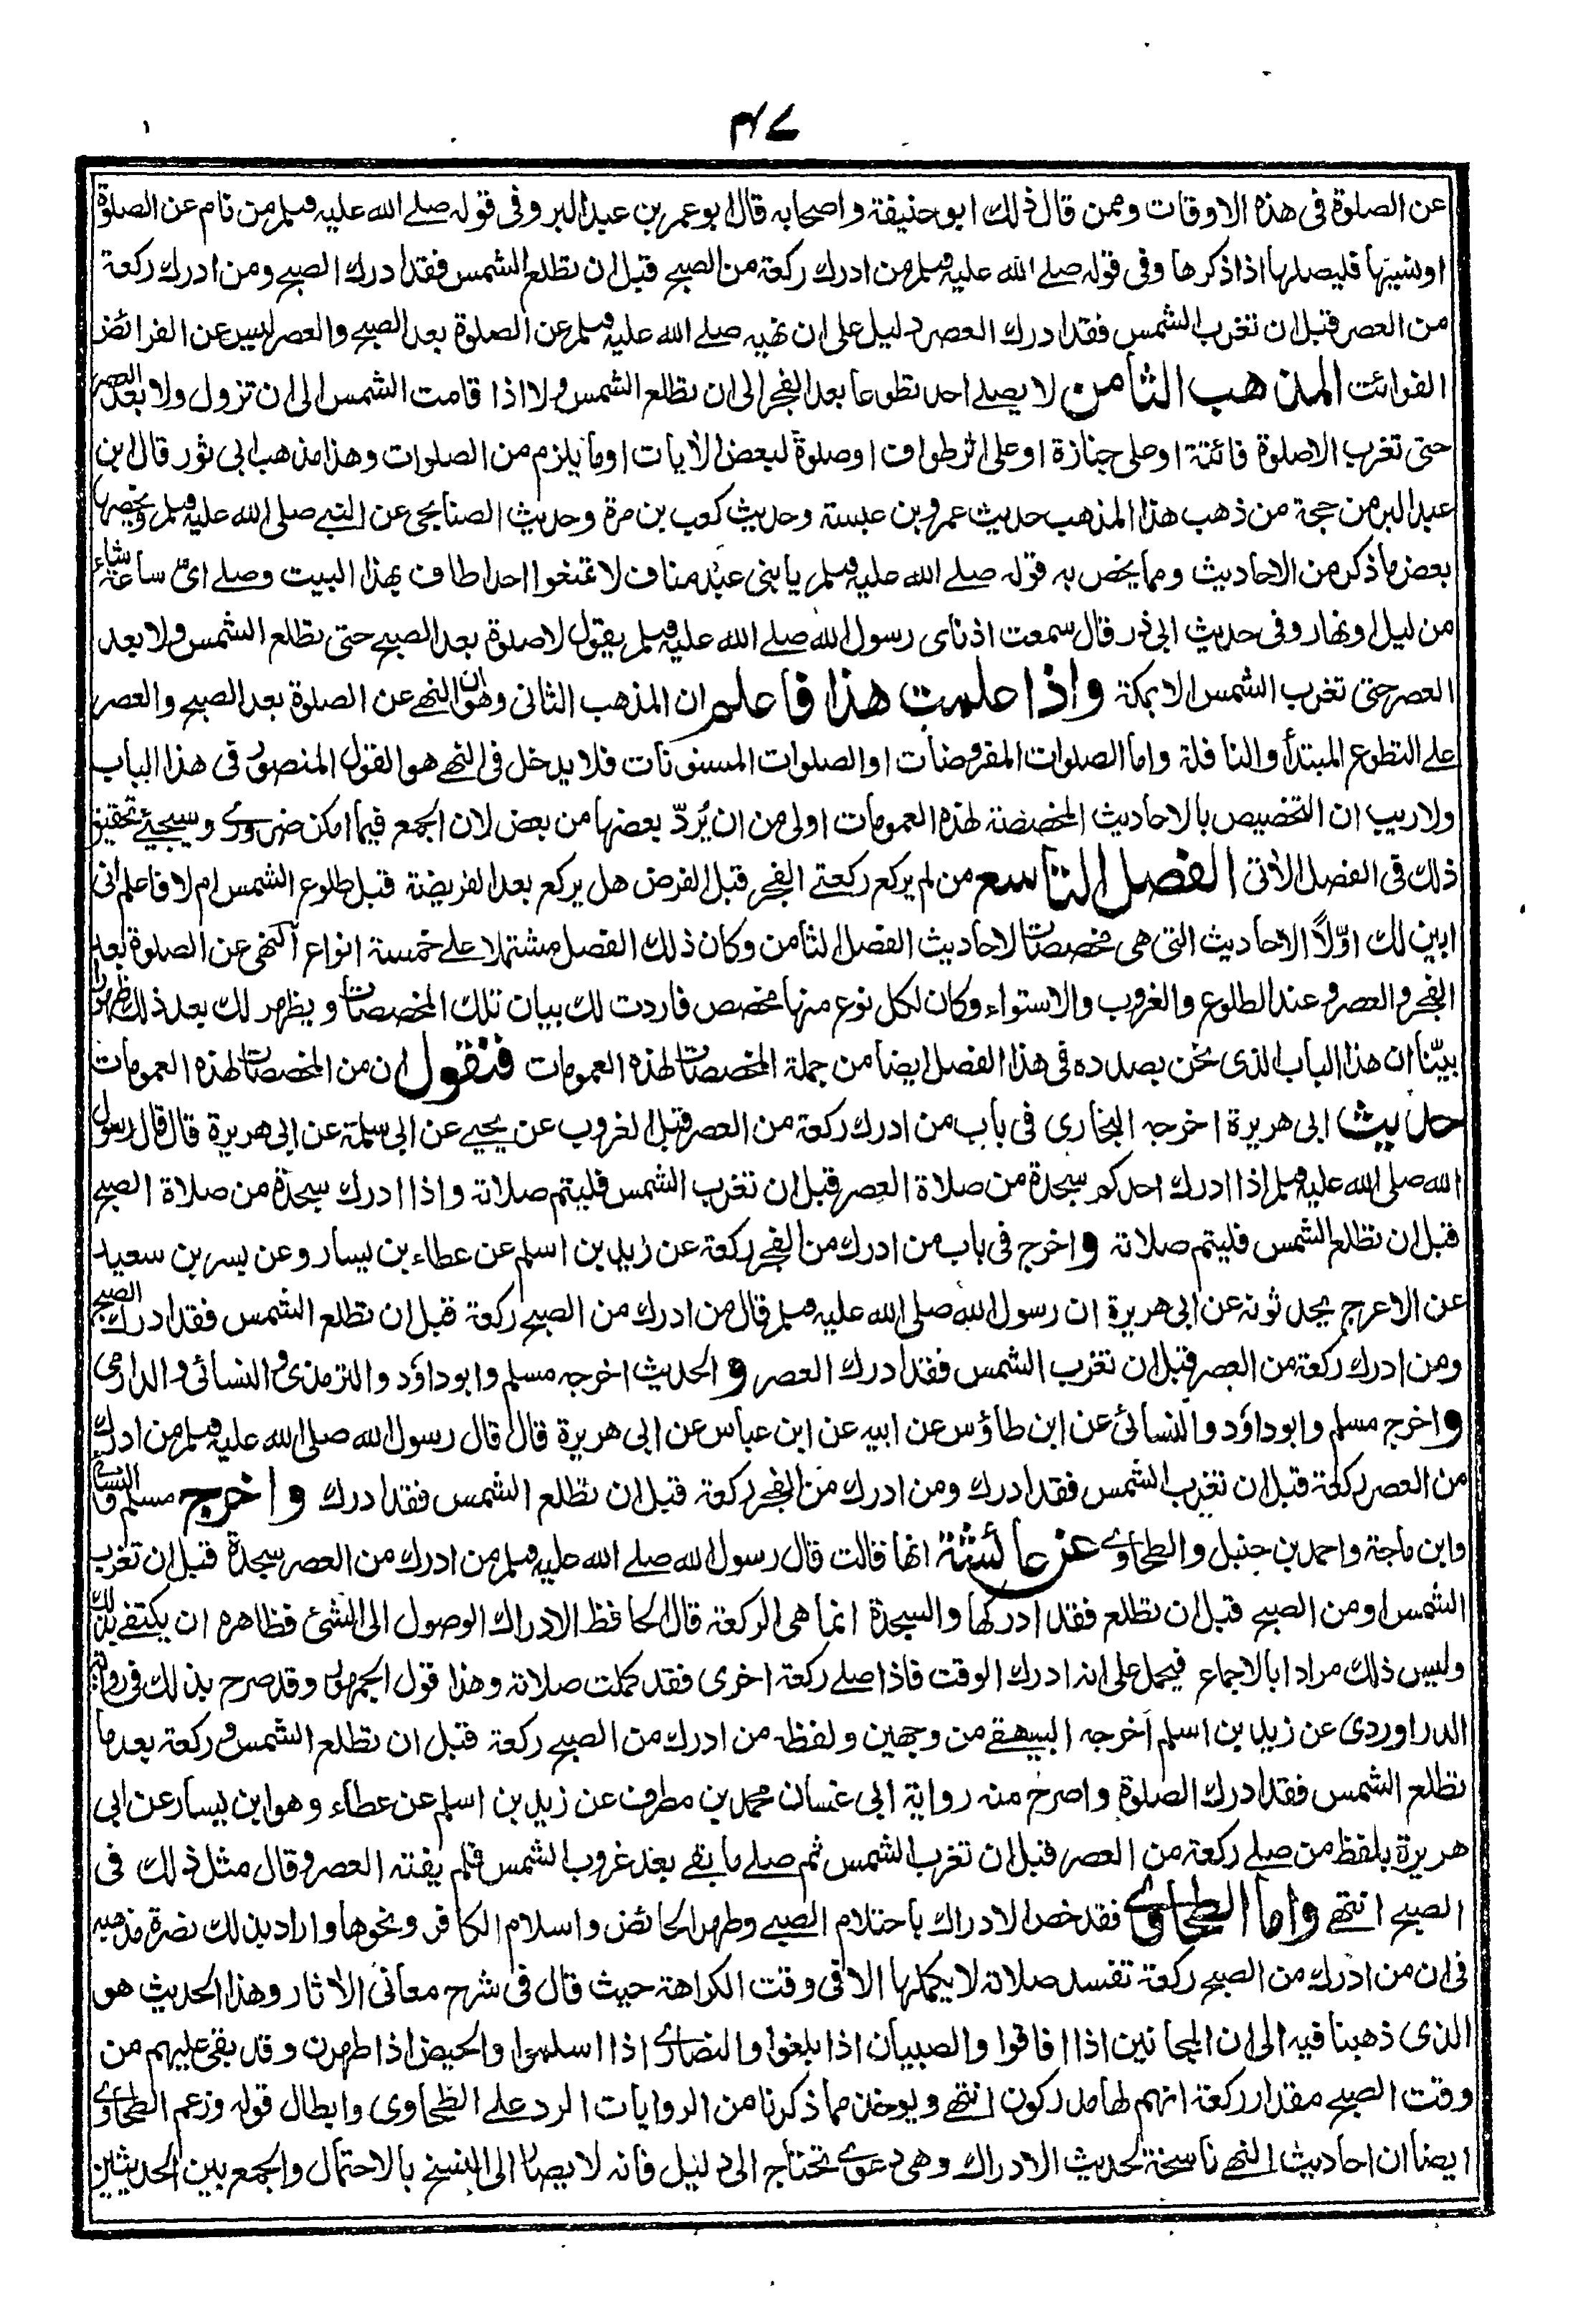 ۴۷
عن الصلوة فى هذه الاوقات وممن قال ذلك ابوحنيفة واصحابه قال ابوعمر بن عبدالبر وفى قوله صلے الله عليه وسلم من نام عن الصلوة
اونسيها فليصلها اذا ذكرها وفى قوله صلے الله عليه وسلم من ادرك ركعة من الصبح قبل ان تطلع الشمس فقد ادرك الصبح ومن ادرك ركعة
من العصر قبل ان تغرب الشمس فقد ادرك العصر دليل على ان نهيه صلے الله عليه وسلم عن الصلوة بعد الصبح والعصر ليس عن الفرائض
الفوائت المذهب الثامن لا يصلے احد تطوعا بعد الفجر الى ان تطلع الشمس ولا اذا قامت الشمس الى ان تزول ولا بعد العصر
حتى تغرب الاصلوة فائتة او على جنازة او على اثر طواف او صلوة لبعض الأيات او ما يلزم من الصلوات وهذا مذهب ابى ثور قال ابن
عبد البر من حجة من ذهب هذا المذهب حديث عمرو بن عبسة وحديث كعب بن مرة وحديث الصنابحى عن النبے صلى الله عليه وسلم ويخصها
بعض ما ذكر من الاحاديث ومما يخص به قوله صلے الله عليه وسلم يا بنى عبد مناف لا تمنعوا احدا طاف بهذا البيت وصلے اىّ ساعة شاء
من ليل او نهار وفى حديث ابى ذر قال سمعت اذناى رسول الله صلے الله عليه وسلم يقول لاصلوة بعد الصبح حتى تطلع الشمس ولا بعد
العصر حتى تغرب الشمس الا بمكة واذا علمت هذا فاعلم ان المذهب الثانى وهو ان النهے عن الصلوة بعد الصبح والعصر
علے التطوع المبتدأ والنافلة واما الصلوات المفروضات او الصلوات المسنونات فلا يدخل فى النهے هو القول المنصور فى هذا الباب
ولاريب ان التخصيص بالاحاديث المخصصة لهذه العمومات اولى من ان يُردّ بعضها من بعض لان الجمع فيما امكن ضرورى وسيجيئ تحقيق
ذلك فى الفصل الأتى الفصل التاسع من لم يركع ركعتے الفجر قبل الفرض هل يركع بعد الفريضة قبل طلوع الشمس ام لا فاعلم انى
ابين لك اوّلاً الاحاديث التى هى مخصصات لاحاديث الفصل الثامن وكان ذلك الفصل مشتملا علے خمسة انواع النهى عن الصلوة بعد
الفجر والعصر وعند الطلوع والغروب والاستواء وكان لكل نوع منها مخصص فاردت لك بيان تلك المخصصات ويظهر لك بعد ذلك ظهورا
بيّنا ان هذا الباب الذى نحن بصدده فى هذا الفصل ايضا من جملة المخصصات لهذه العمومات فنقول ان من المخصصات لهذه العمومات
حديث ابى هريرة اخرجه البخارى فى باب من ادرك ركعة من العصر قبل الغروب عن يحيے عن ابى سلمة عن ابى هريرة قال قال رسول
الله صلى الله عليه وسلم اذا ادرك احدكم سجدة من صلاة العصر قبل ان تغرب الشمس فليتم صلاته واذا ادرك سجدة من صلاة الصبح
قبل ان تطلع الشمس فليتم صلاته واخرج فى باب من ادرك من الفجر ركعة عن زيد بن اسلم عن عطاء بن يسار وعن بسر بن سعيد
عن الاعرج يحدثونه عن ابى هريرة ان رسول الله صلى الله عليه وسلم قال من ادرك من الصبح ركعة قبل ان تطلع الشمس فقد ادرك الصبح
ومن ادرك ركعة من العصر قبل ان تغرب الشمس فقد ادرك العصر والحديث اخرجه مسلم وابوداؤد والترمذى والنسائى والدارمى
واخرج مسلم وابوداؤد والنسائى عن ابن طاؤس عن ابيه عن ابن عباس عن ابى هريرة قال قال رسول الله صلى الله عليه وسلم من ادرك
من العصر ركعة قبل ان تغرب الشمس فقد ادرك ومن ادرك من الفجر ركعة قبل ان تطلع الشمس فقد ادرك واخرج مسلم والنسائى
وابن ماجة واحمد بن حنبل والطحاوى عن عائشة انها قالت قال رسول الله صلے الله عليه وسلم من ادرك من العصر سجدة قبل ان تغرب
الشمس او من الصبح قبل ان تطلع فقد ادركها والسجدة انما هى الركعة قال الحافظ الادراك الوصول الى الشئ فظاهره ان يكتفے بذلك
وليس ذلك مرادا بالاجماع فيحمل على انه ادرك الوقت فاذا صلے ركعة اخرى فقد كملت صلاته وهذا قول الجمهور وقد صرح بذلك فى رواية
الدراوردى عن زيد بن اسلم اخرجه البيهقے من وجهين ولفظه من ادرك من الصبح ركعة قبل ان تطلع الشمس وركعة بعد ما
تطلع الشمس فقد ادرك الصلوة واصرح منه رواية ابى غسان محمد بن مطرف عن زيد بن اسلم عن عطاء وهو ابن يسار عن ابى
هريرة بلفظ من صلے ركعة من العصر قبل ان تغرب الشمس ثم صلے ما بقے بعد غروب الشمس فلم يفته العصر وقال مثل ذلك فى
الصبح انتهے واما الطحاوى فقد خص الادراك باحتلام الصبے وطهر الحائض واسلام الكافر ونحوها واراد بذلك نصرة مذهبه
فى ان من ادرك من الصبح ركعة تفسد صلاته لا يكملها الا فى وقت الكراهة حيث قال فى شرح معانى الأثار وهذا الحديث هو
الذى ذهبنا فيه الى ان المجانين اذا افاقوا والصبيان اذا بلغوا والنصارى اذا اسلموا والحيض اذا طهرن وقد بقى عليهم من
وقت الصبح مقدار ركعة انهم لها مدركون انتهے ويوخذ مما ذكرنا من الروايات الرد علے الطحاوى وابطال قوله وزعم الطحاوى
ايضا ان احاديث النهے ناسخة لحديث الادراك وهى دعوى تحتاج الى دليل فانه لا يصار الى النسخ بالاحتمال والجمع بين الحديثين